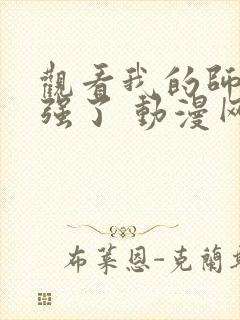 觀看我的師
强了 動漫
布萊恩-克蘭